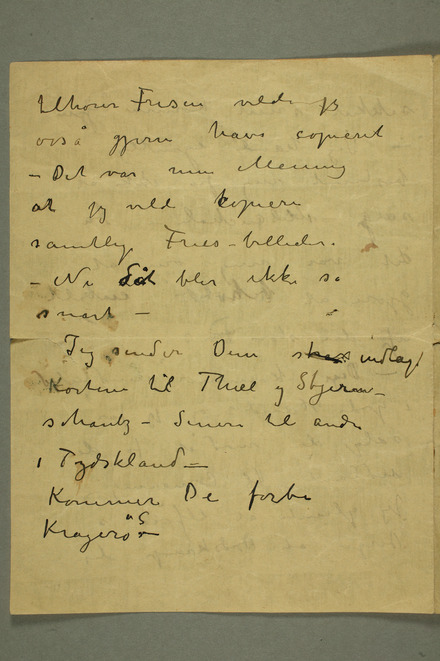 tilhører Frisen vilde jeg
også gjerne have copieret
– Det var min Mening
at jeg vild kopiere
samtlige Fries-billeder.
– Nu det blir ikke så
snart –
Jeg sender Dem indlagt
Kortene til Thiel og Stjern-
schantz – Senere til andre
i Tydskland –
Kommer De forbi
Kragerø